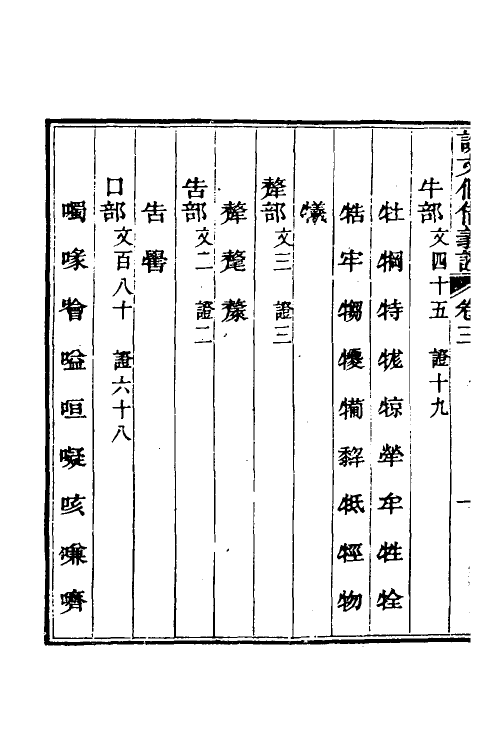 說文假借義證 卷三 一
牛部 文四十五 證十九
牡犅特牻㹁犖牟牲牷
牿牢犓㹛犕犂牴牼物
犧
犛部 文三 證三
犛氂斄
告部 文二 證二
告嚳
口部 文百八十 證六十八
噣喙噲嗌咺㘈咳嗛嚌